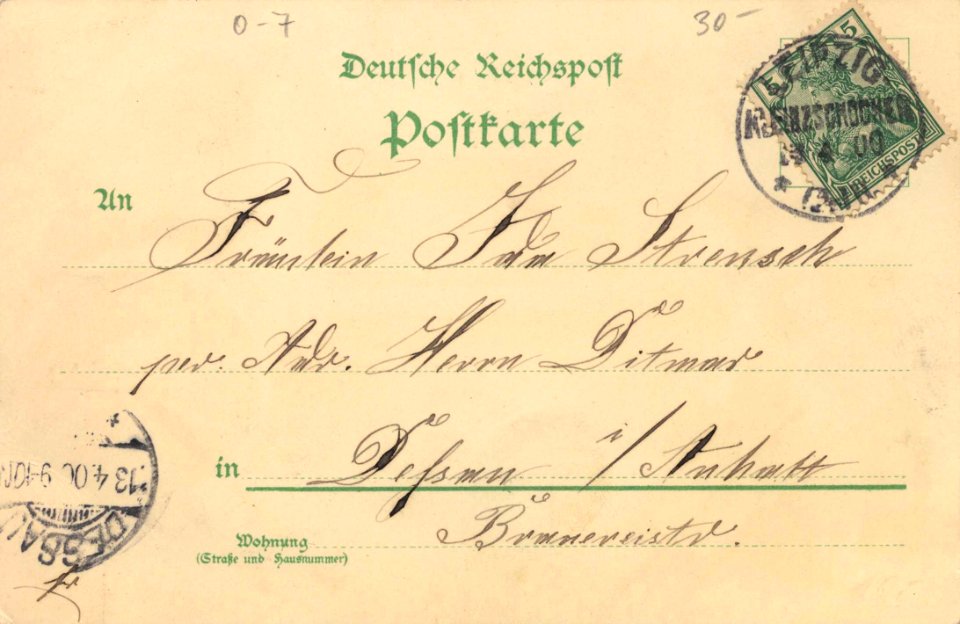 0-7
30-
Deutsche Reichspost
Postkarte
5
REICHSPOST
LEIPZIG
KLEINZSCHOCHER
4 00
An
Fräulein Ida Strensch
per Adr. Herrn Ditmar
in Dessau i/Anhalt
Wohnung
(Straße und Hausnummer)
Brauereistr.
DESSAU
13 4 00 9-10